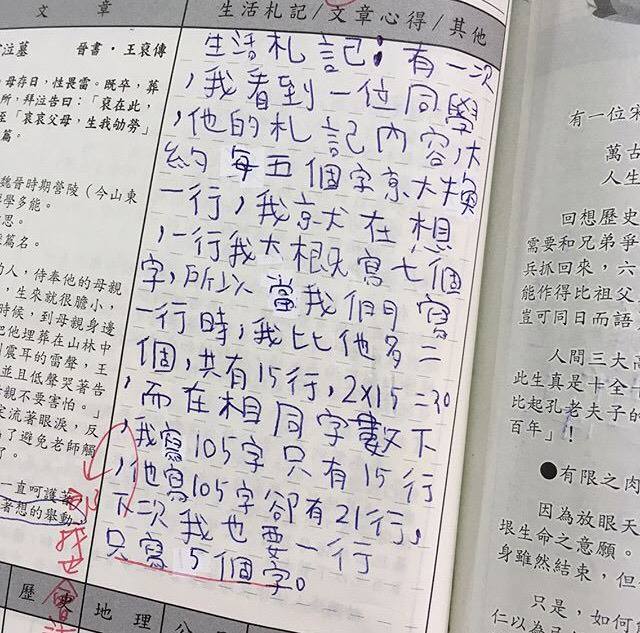 文 章
生活札記/文章心得/其他
泣墓 晉書·王裒傳
母存日,性畏雷。既卒,葬
所,拜泣告曰:「裒在此,
至「哀哀父母,生我劬勞」
篇。
魏晉時期營陵(今山東
學多能。
思。
篇名。
的人,侍奉他的母親
,生來就很膽小,
時候,到母親身邊
把他埋葬在山林中
震耳的雷聲,王
並且低聲哭著告
親不要害怕。」
流著眼淚,反
了避免老師觸
了。
一直呵護著
著想的舉動
生活札記:有一次
,我看到一位同學
,他的札記內容,大
約每五個字就換
一行,我就在想
,一行我大概寫七個
字,所以當我們寫
一行時,我比他多二
個,共有15行,2x15=30
,而在相同字數下
,我寫105字只有15行
,他寫105字卻有21行,
下次我也要一行
只寫5個字。
歷史 地理 公
有一位宋
萬古
人生
回想歷史
需要和兄弟爭
兵抓回來,六
能作得比祖父
豈可同日而語
人間三大高
此生真是十全十
比起孔老夫子的
百年」!
●有限之肉
因為放眼天
垠生命之意願。
身雖然結束,但
只是,如何
仁以為己